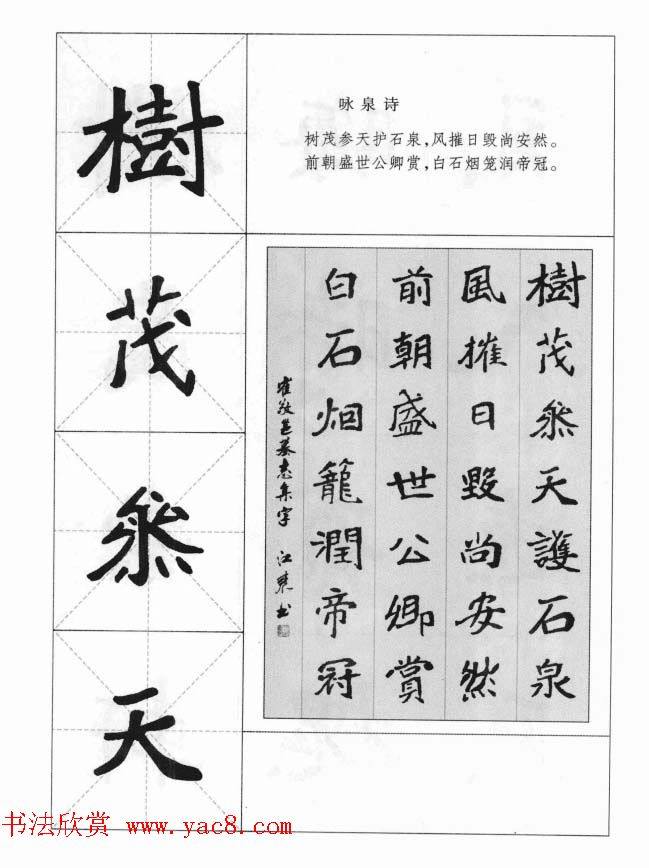 樹
茂
叅
天
咏泉诗
树茂参天护石泉，风摧日毁尚安然。
前朝盛世公卿赏，白石烟笼润帝冠。
樹茂叅天護石泉
風摧日毀尚安然
前朝盛世公卿賞
白石烟籠潤帝冠
崔敬邕墓志集字 江東书
书法欣赏 www.yac8.com